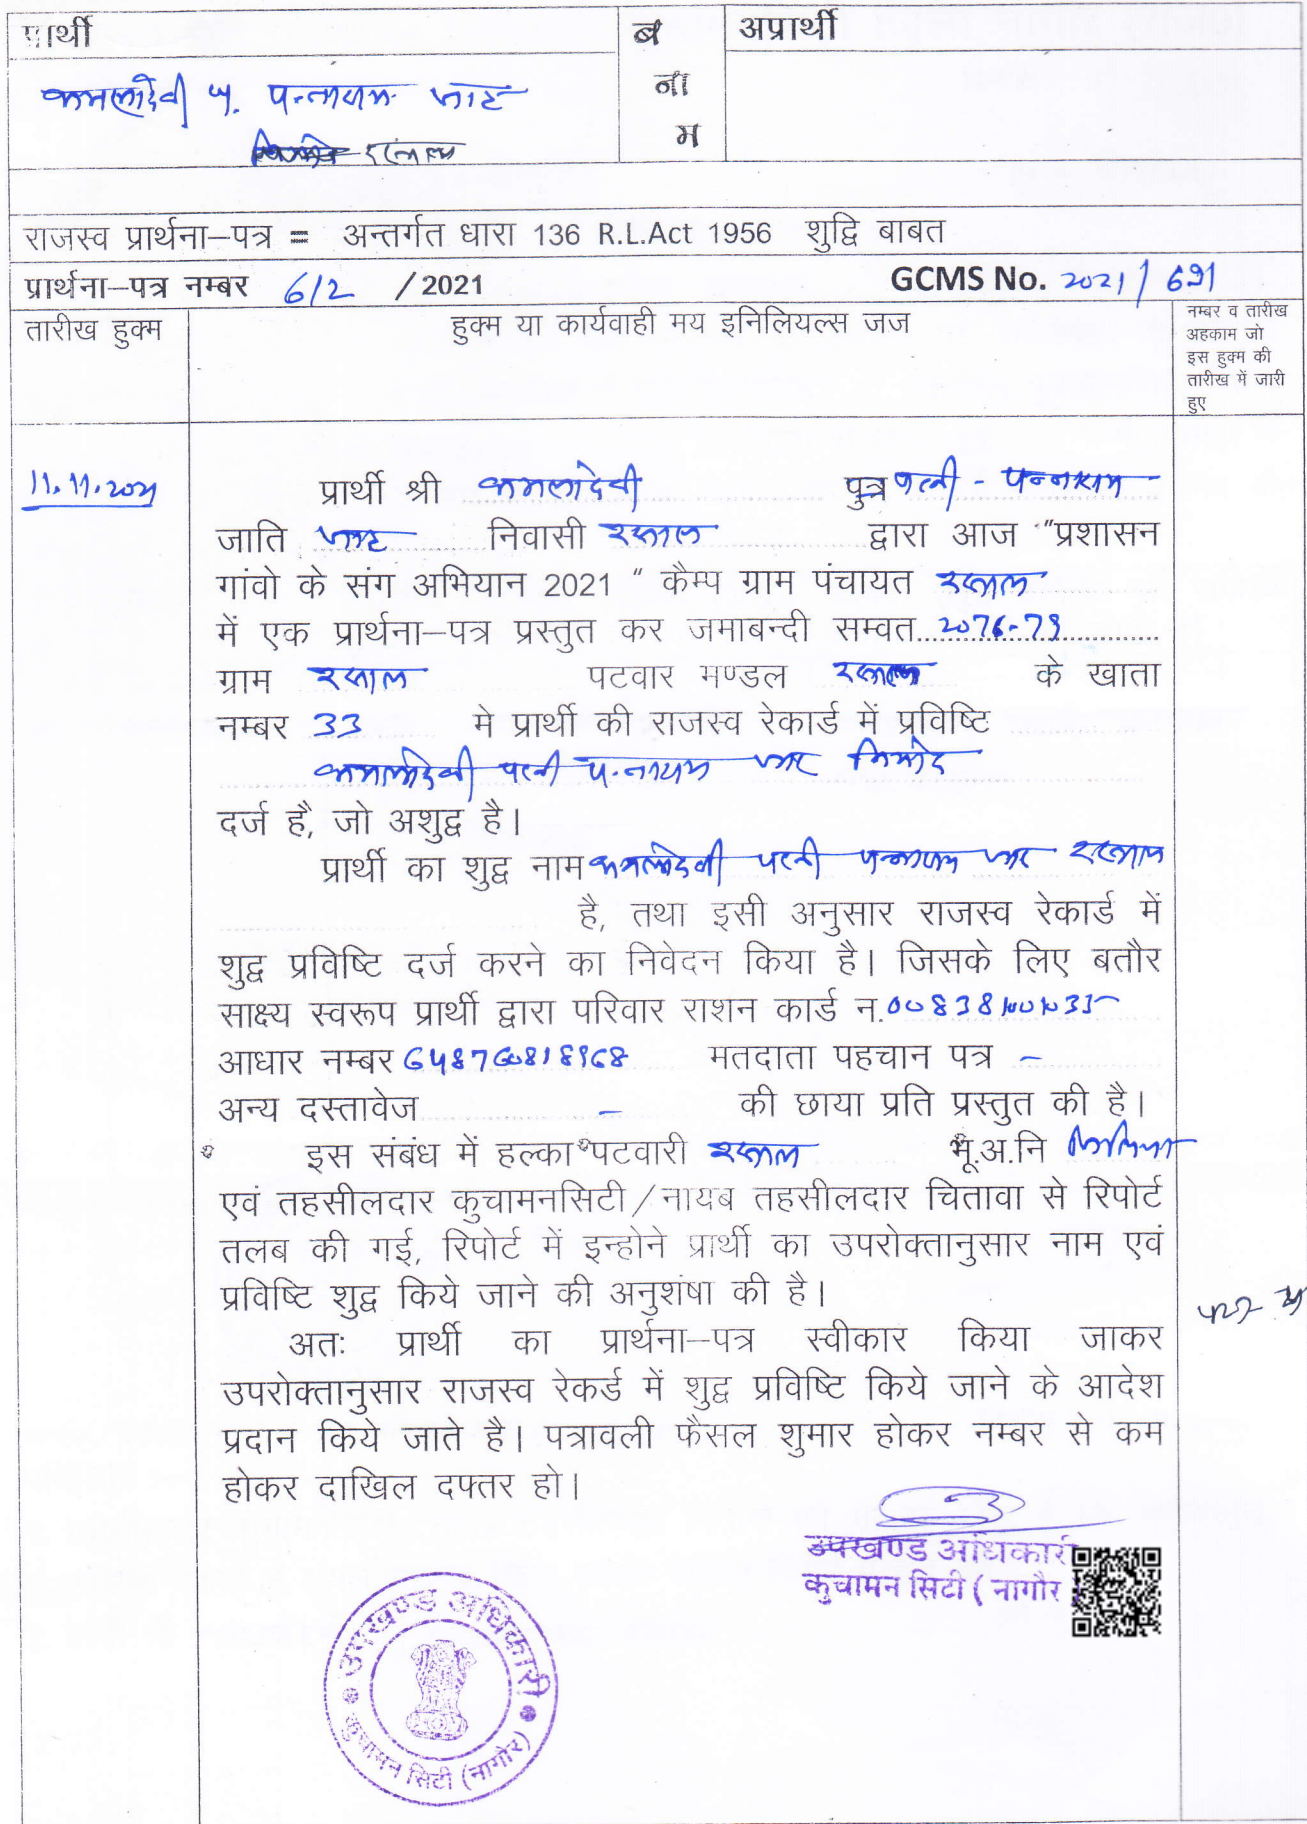 प्रार्थी
ब
ना
म
अप्रार्थी
कमलादेवी प. पन्नाराम जाट
राजस्व प्रार्थना–पत्र = अन्तर्गत धारा 136 R.L.Act 1956 शुद्वि बाबत
प्रार्थना–पत्र नम्बर 612 /2021 GCMS No. 2021/691
तारीख हुक्म
हुक्म या कार्यवाही मय इनिलियल्स जज
नम्बर व तारीख
अहकाम जो
इस हुक्म की
तारीख में जारी
हुए
11.11.2021
प्रार्थी श्री कमलादेवी पुत्र पत्नी - पन्नाराम
जाति जाट निवासी द्वारा आज "प्रशासन
गांवो के संग अभियान 2021 " कैम्प ग्राम पंचायत
में एक प्रार्थना–पत्र प्रस्तुत कर जमाबन्दी सम्वत 2076-79
ग्राम पटवार मण्डल के खाता
नम्बर 33 मे प्रार्थी की राजस्व रेकार्ड में प्रविष्टि
कमलादेवी पत्नी पन्नाराम जाट
दर्ज है, जो अशुद्व है।
प्रार्थी का शुद्व नाम कमलादेवी पत्नी पन्नाराम जाट
है, तथा इसी अनुसार राजस्व रेकार्ड में
शुद्व प्रविष्टि दर्ज करने का निवेदन किया है। जिसके लिए बतौर
साक्ष्य स्वरूप प्रार्थी द्वारा परिवार राशन कार्ड न.
आधार नम्बर मतदाता पहचान पत्र –
अन्य दस्तावेज – की छाया प्रति प्रस्तुत की है।
इस संबंध में हल्का पटवारी भू.अ.नि
एवं तहसीलदार कुचामनसिटी/नायब तहसीलदार चितावा से रिपोर्ट
तलब की गई, रिपोर्ट में इन्होने प्रार्थी का उपरोक्तानुसार नाम एवं
प्रविष्टि शुद्व किये जाने की अनुशंषा की है।
अतः प्रार्थी का प्रार्थना–पत्र स्वीकार किया जाकर
उपरोक्तानुसार राजस्व रेकर्ड में शुद्व प्रविष्टि किये जाने के आदेश
प्रदान किये जाते है। पत्रावली फैसल शुमार होकर नम्बर से कम
होकर दाखिल दफ्तर हो।
उपखण्ड अधिकारी
कुचामन सिटी ( नागौर
उपखण्ड अधिकारी
कुचामन सिटी (नागौर)